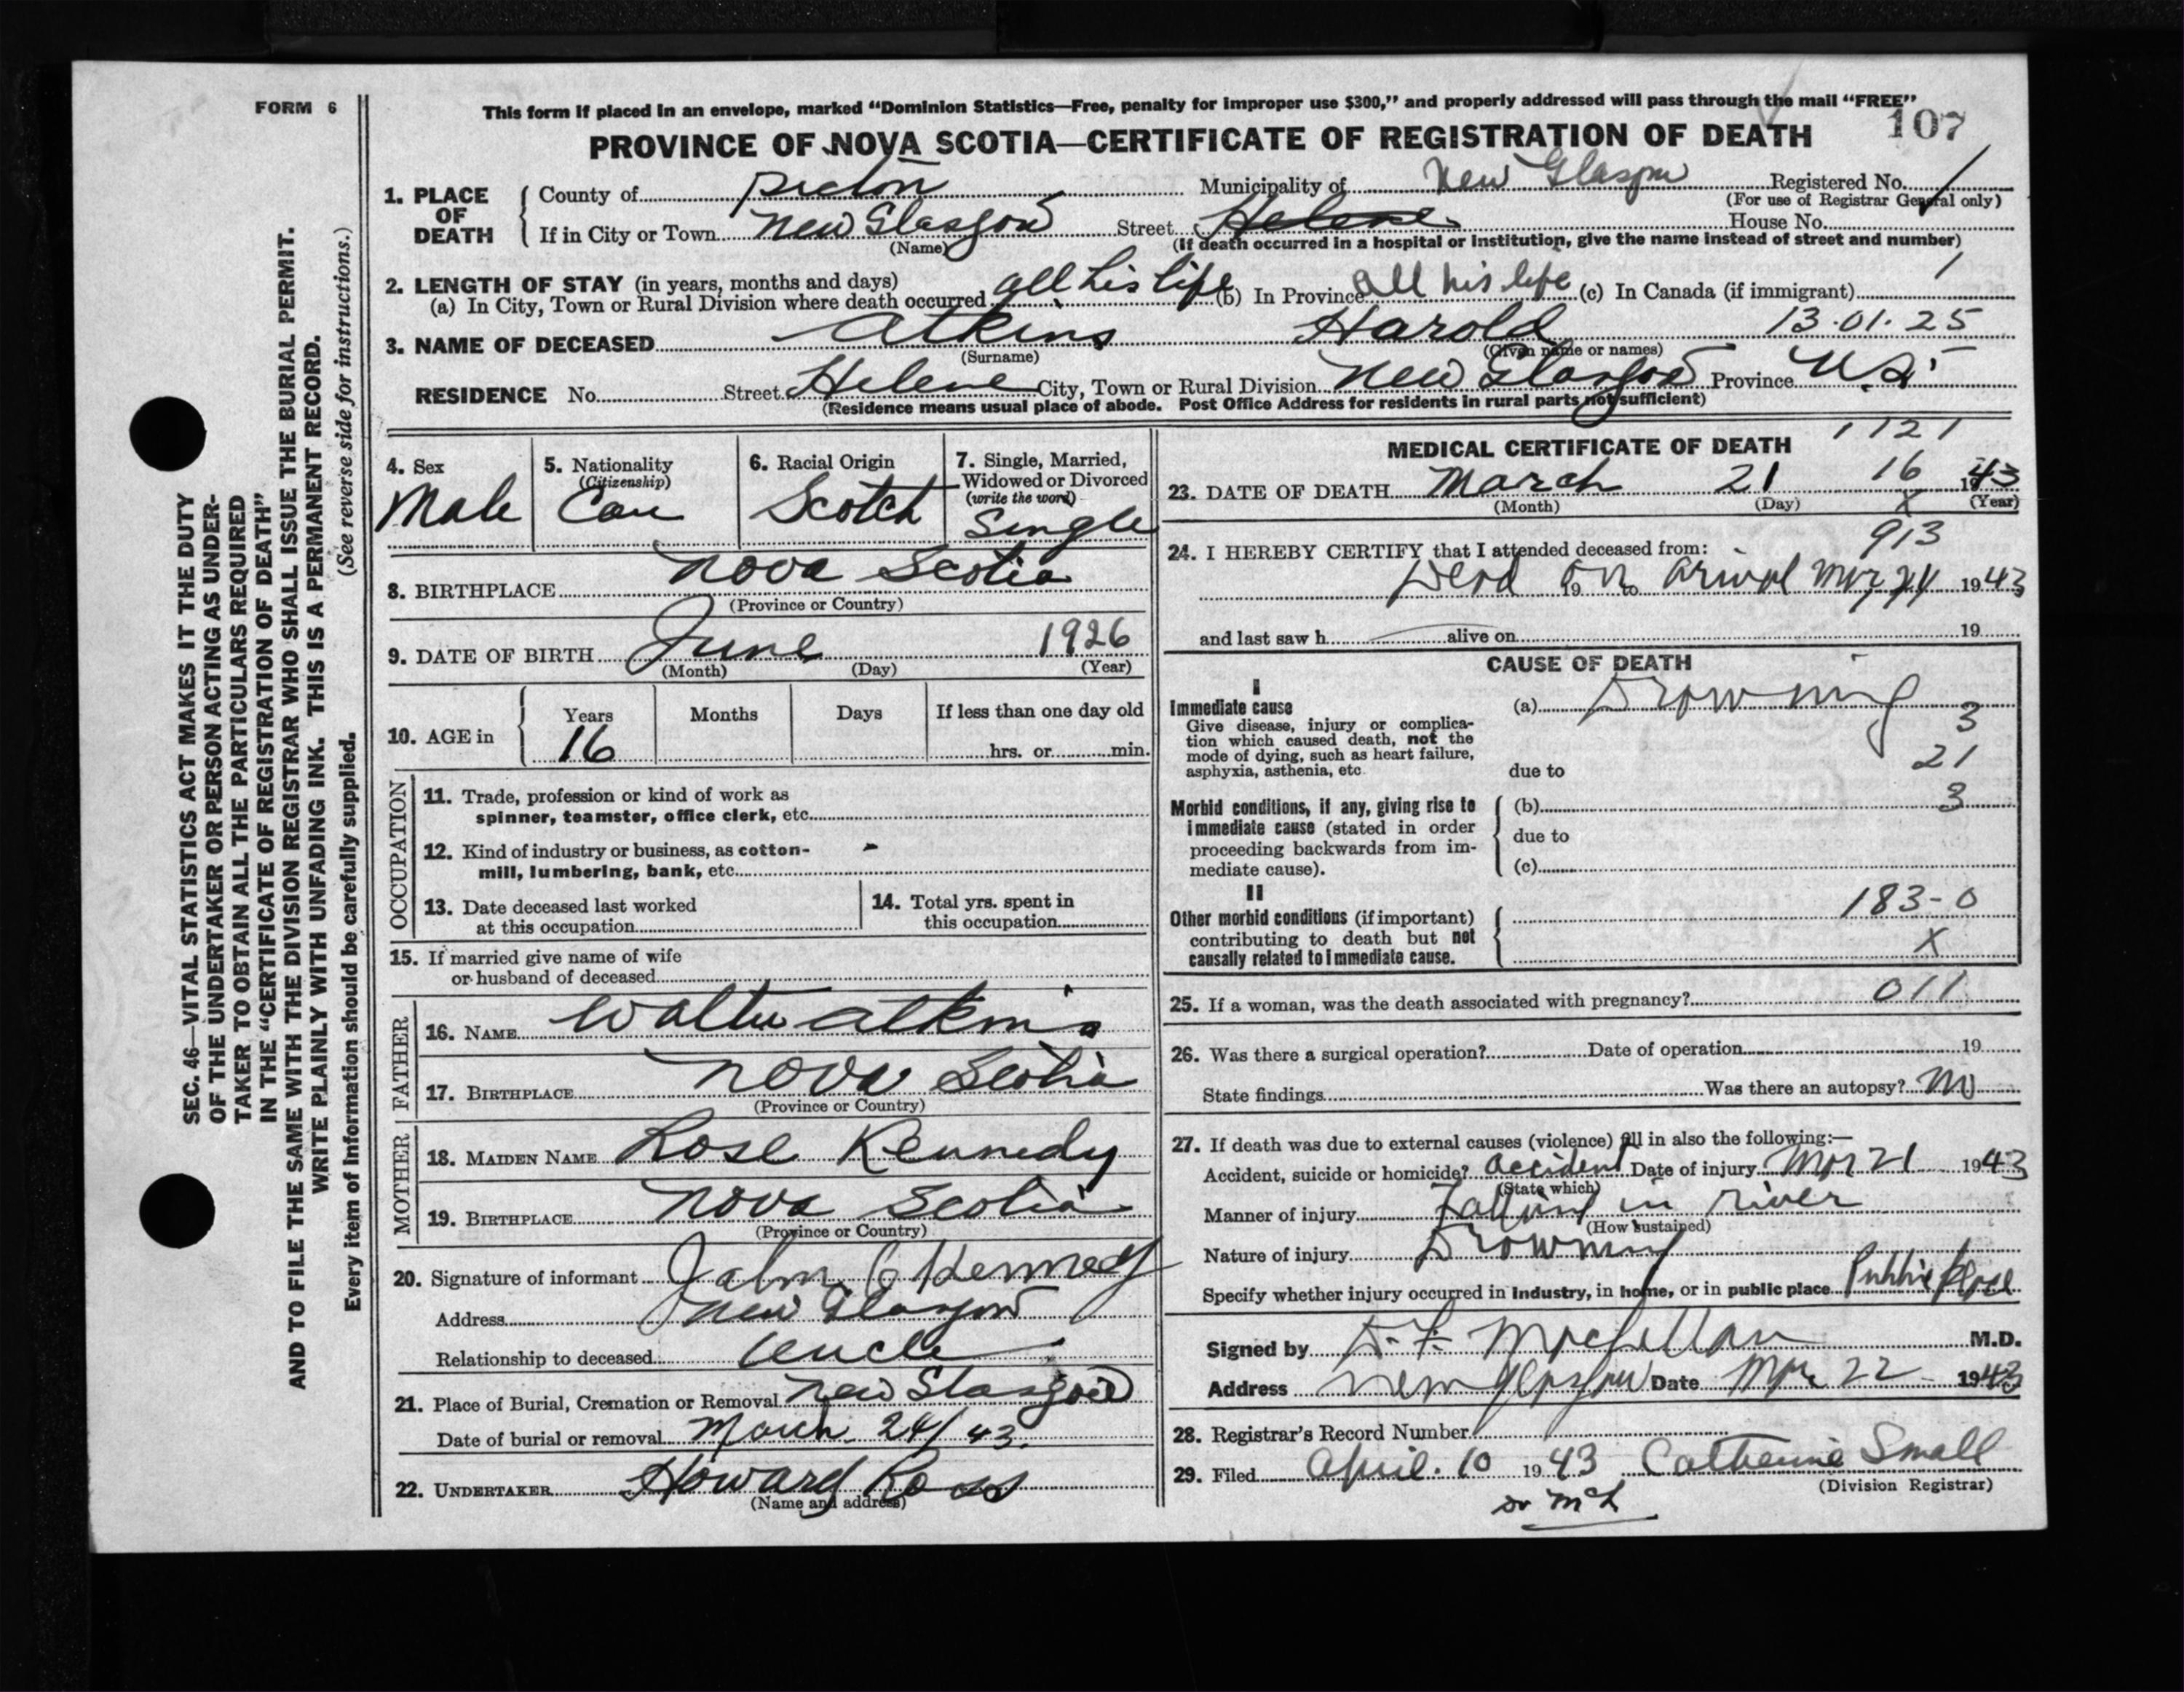 FORM 6
This form if placed in an envelope, marked “Dominion Statistics—Free, penalty for improper use $300,” and properly addressed will pass through the mail “FREE”
PROVINCE OF NOVA SCOTIA—CERTIFICATE OF REGISTRATION OF DEATH 107
1. PLACE OF DEATH
County of Pictou Municipality of New Glasgow Registered No.
(For use of Registrar General only)
If in City or Town New Glasgow Street Helene House No.
(Name) (If death occurred in a hospital or institution, give the name instead of street and number)
2. LENGTH OF STAY (in years, months and days)
(a) In City, Town or Rural Division where death occurred all his life (b) In Province all his life (c) In Canada (if immigrant) 1
3. NAME OF DECEASED Atkins Harold 13·01·25
(Surname) (Given name or names)
RESIDENCE No. Street Helene City, Town or Rural Division New Glasgow Province N.S.
(Residence means usual place of abode. Post Office Address for residents in rural parts not sufficient)
4. Sex
Male
5. Nationality
(Citizenship)
Can
6. Racial Origin
Scotch
7. Single, Married,
Widowed or Divorced
(write the word)
Single
8. BIRTHPLACE Nova Scotia
(Province or Country)
9. DATE OF BIRTH June 1926
(Month) (Day) (Year)
10. AGE in
Years Months Days If less than one day old
16 hrs. or min.
OCCUPATION
11. Trade, profession or kind of work as
spinner, teamster, office clerk, etc.
12. Kind of industry or business, as cotton-
mill, lumbering, bank, etc.
13. Date deceased last worked
at this occupation
14. Total yrs. spent in
this occupation
15. If married give name of wife
or husband of deceased
FATHER
16. NAME Walter Atkins
17. BIRTHPLACE Nova Scotia
(Province or Country)
MOTHER
18. MAIDEN NAME Rose Kennedy
19. BIRTHPLACE Nova Scotia
(Province or Country)
20. Signature of informant Kennedy
Address New Glasgow
Relationship to deceased Uncle
21. Place of Burial, Cremation or Removal New Glasgow
Date of burial or removal March 24/43.
22. UNDERTAKER Howard Ross
(Name and address)
MEDICAL CERTIFICATE OF DEATH 1121
16
23. DATE OF DEATH March 21 1943
(Month) (Day) (Year)
X
913
24. I HEREBY CERTIFY that I attended deceased from:
Dead on arival 19 to 1943
and last saw h alive on 19
CAUSE OF DEATH
I
Immediate cause
Give disease, injury or complica-
tion which caused death, not the
mode of dying, such as heart failure,
asphyxia, asthenia, etc
(a) Drowning
3
21
due to
Morbid conditions, if any, giving rise to
immediate cause (stated in order
proceeding backwards from im-
mediate cause).
(b) 3
due to
(c)
II
Other morbid conditions (if important)
contributing to death but not
causally related to immediate cause.
183-0
X
25. If a woman, was the death associated with pregnancy? 011
26. Was there a surgical operation? Date of operation 19
State findings Was there an autopsy? No
27. If death was due to external causes (violence) fill in also the following:—
Accident, suicide or homicide? accident Date of injury Mar 21 1943
(State which)
Manner of injury Falling in river
(How sustained)
Nature of injury Drowning
Specify whether injury occurred in industry, in home, or in public place Public place
Signed by M.D.
Address New Glasgow Date Mar 22 1943
28. Registrar's Record Number
29. Filed April 10 1943 Catherine Small
(Division Registrar)
SEC. 46—VITAL STATISTICS ACT MAKES IT THE DUTY
OF THE UNDERTAKER OR PERSON ACTING AS UNDER-
TAKER TO OBTAIN ALL THE PARTICULARS REQUIRED
IN THE “CERTIFICATE OF REGISTRATION OF DEATH”
AND TO FILE THE SAME WITH THE DIVISION REGISTRAR WHO SHALL ISSUE THE BURIAL PERMIT.
WRITE PLAINLY WITH UNFADING INK. THIS IS A PERMANENT RECORD.
Every item of information should be carefully supplied. (See reverse side for instructions.)